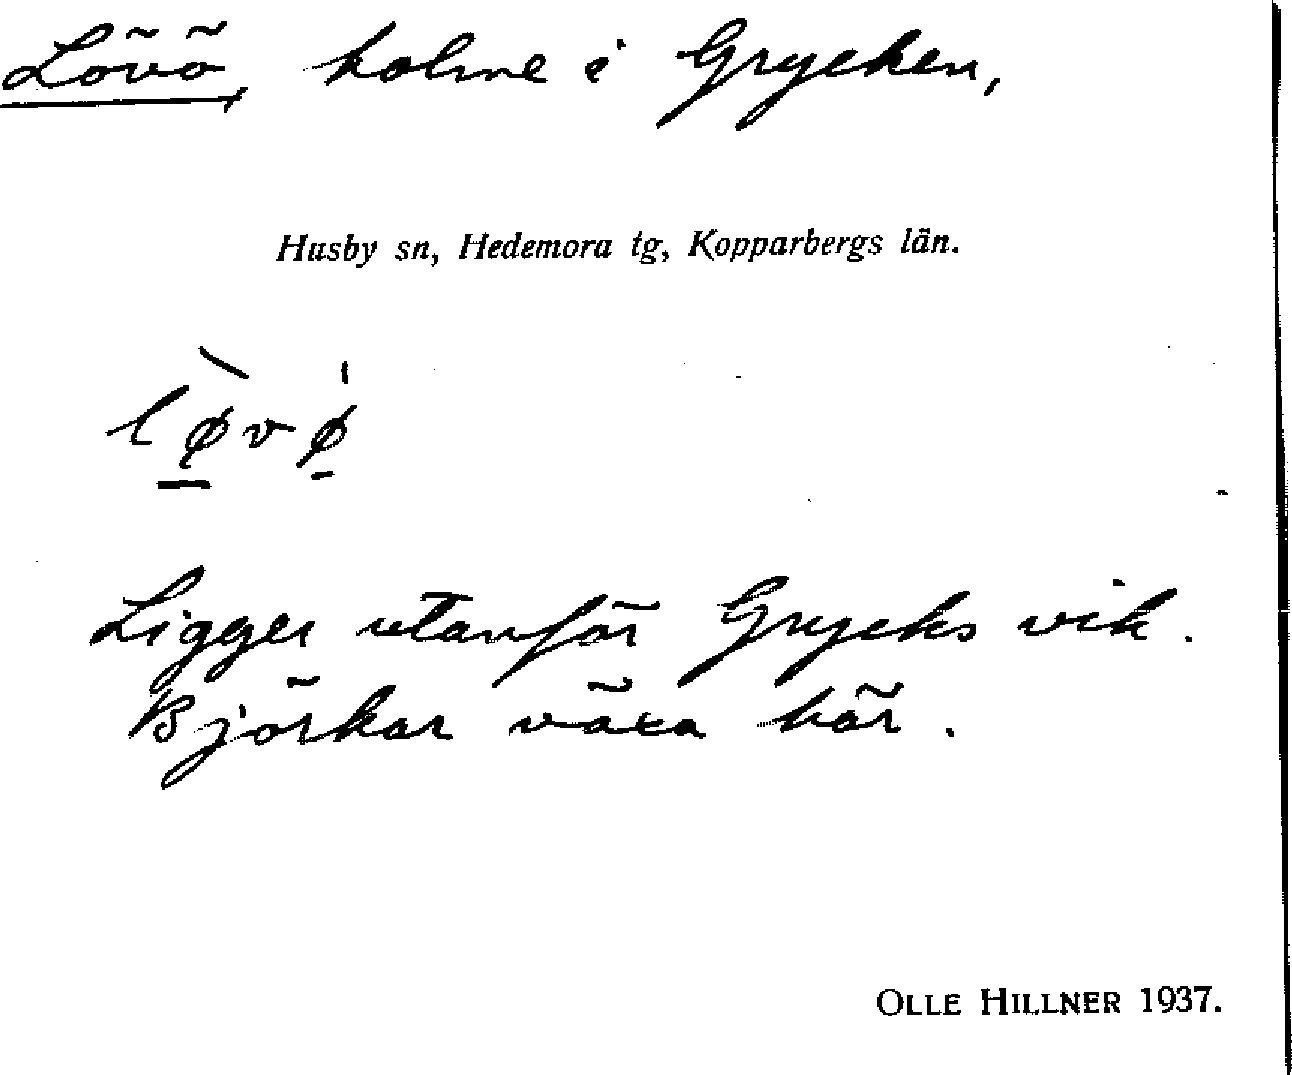 Lövö, holme i Grycken,
Husby sn, Hedemora tg, Kopparbergs län.
lø̱̀vø̱̍
Ligger utanför Grycks vik.
Björkar växa här.
OLLE HILLNER 1937.